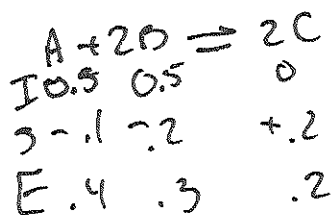 A + 2B = 2C
I 0.5 0.5 0
5 -.1 -.2 +.2
E .4 .3 .2